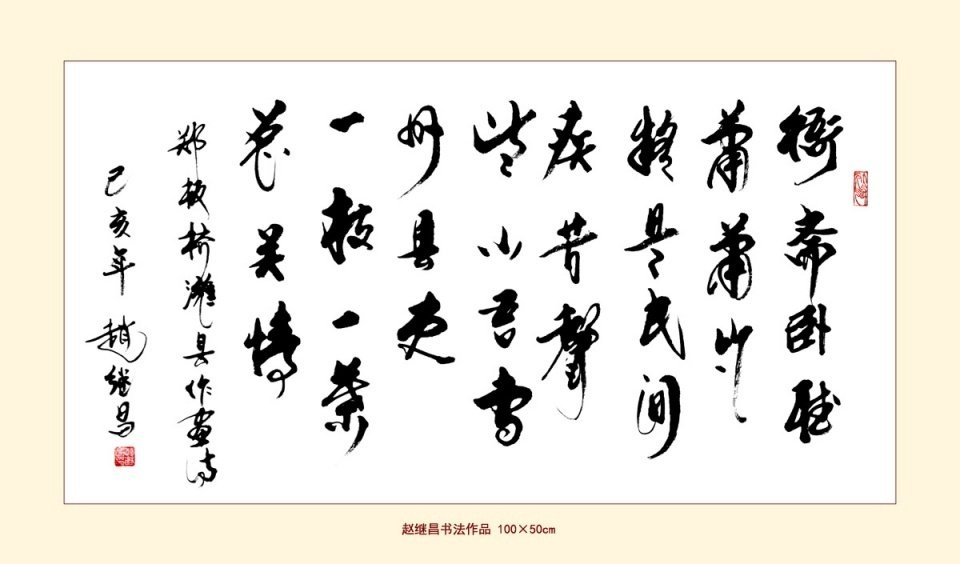 衙斋卧聽
蕭蕭竹
疑是民间
疾苦聲
些小吾曹
州县吏
一枝一葉
总关情
郑板桥潍县作画诗
己亥年 趙继昌
赵继昌书法作品 100×50cm